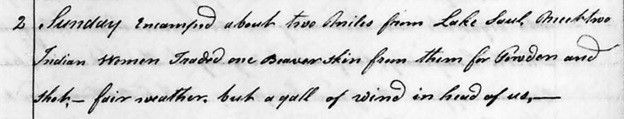 2 Sunday Encamped about two Miles from Lake Saul, Meet two
Indian Women Traded one Beaver Skin from them for Powder and
Shot, – fair weather, but a gall of wind in head of us, —